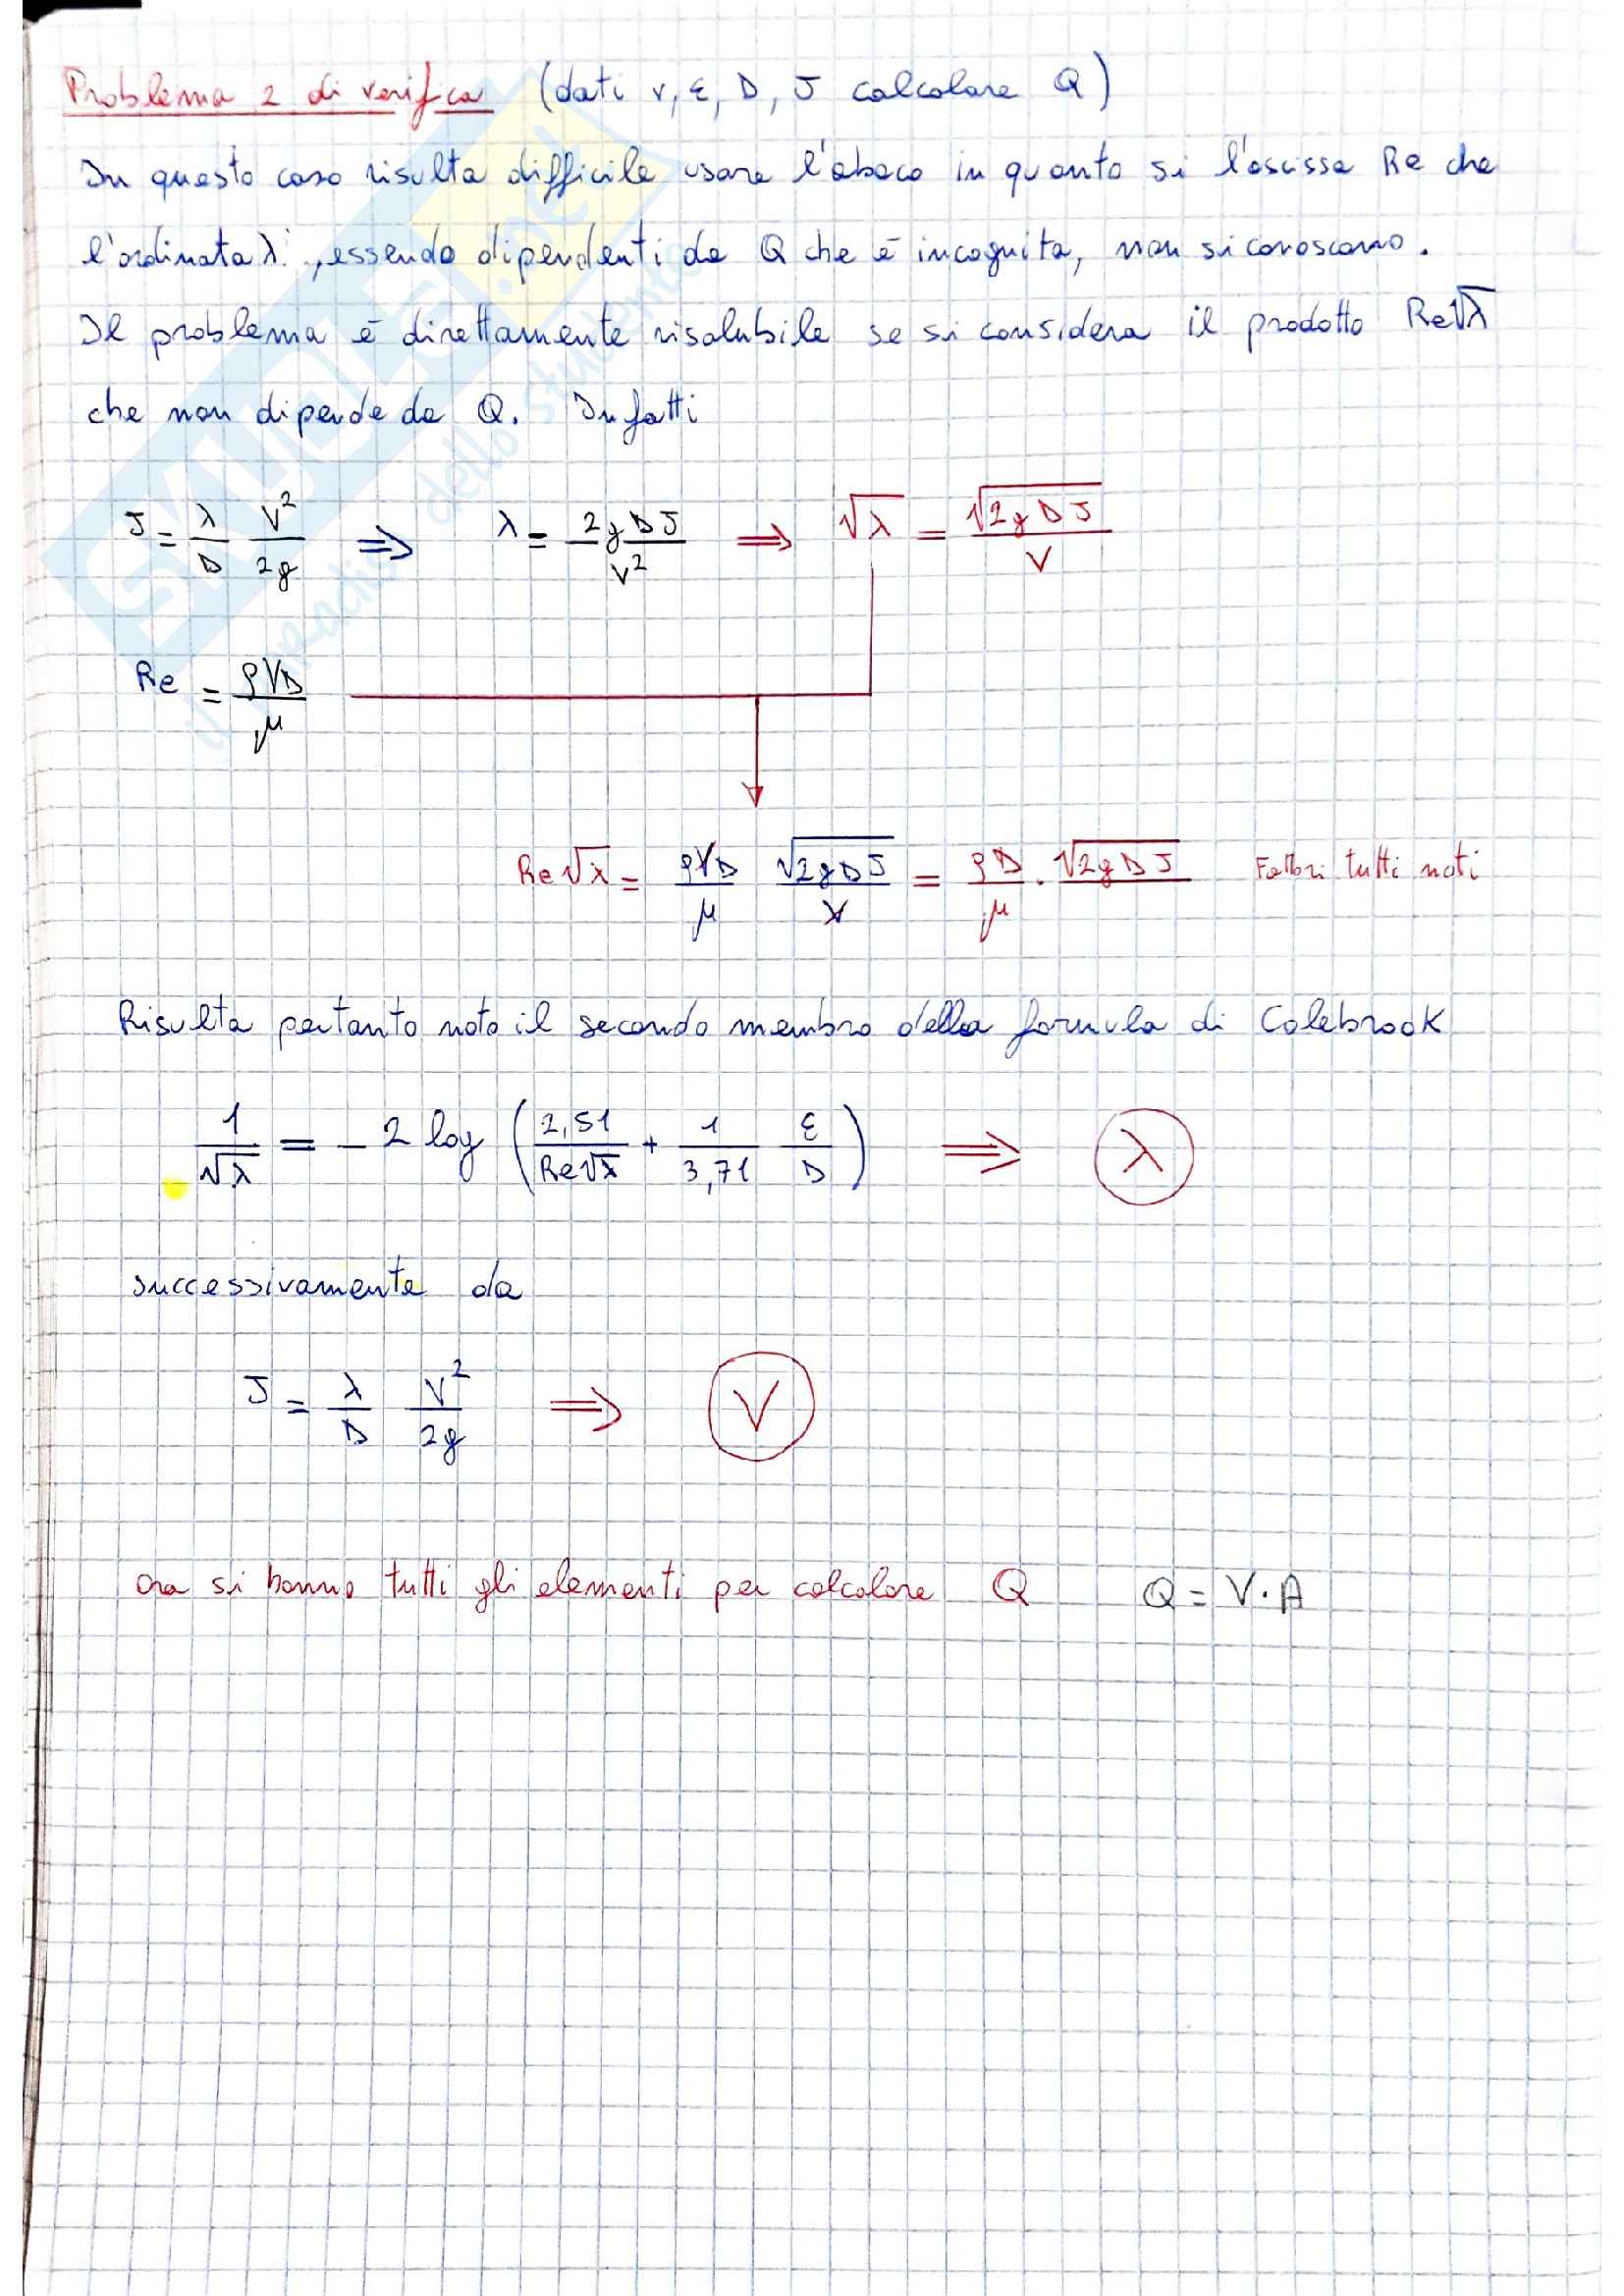 Problema 2 di verifica (dati ν, ε, D, J calcolare Q)
In questo caso risulta difficile usare l'abaco in quanto si l'ascissa Re che
l'ordinata λ, essendo dipendenti da Q che è incognita, non si conoscono.
Il problema è direttamente risolubile se si considera il prodotto Re√λ
che non dipende da Q. Infatti
J = λ/D V²/2g ⇒ λ = 2gDJ/V² ⇒ √λ = √2gDJ/V
Re = ρVD/μ
Re√λ = ρVD/μ √2gDJ/V = ρD/μ · √2gDJ Fattori tutti noti
Risulta pertanto noto il secondo membro della formula di Colebrook
1/√λ = - 2 log (2,51/Re√λ + 1/3,71 ε/D) ⇒ λ
successivamente da
J = λ/D V²/2g ⇒ V
ora si hanno tutti gli elementi per calcolare Q Q = V·A
SKUOLA.net
il paradiso dello studente